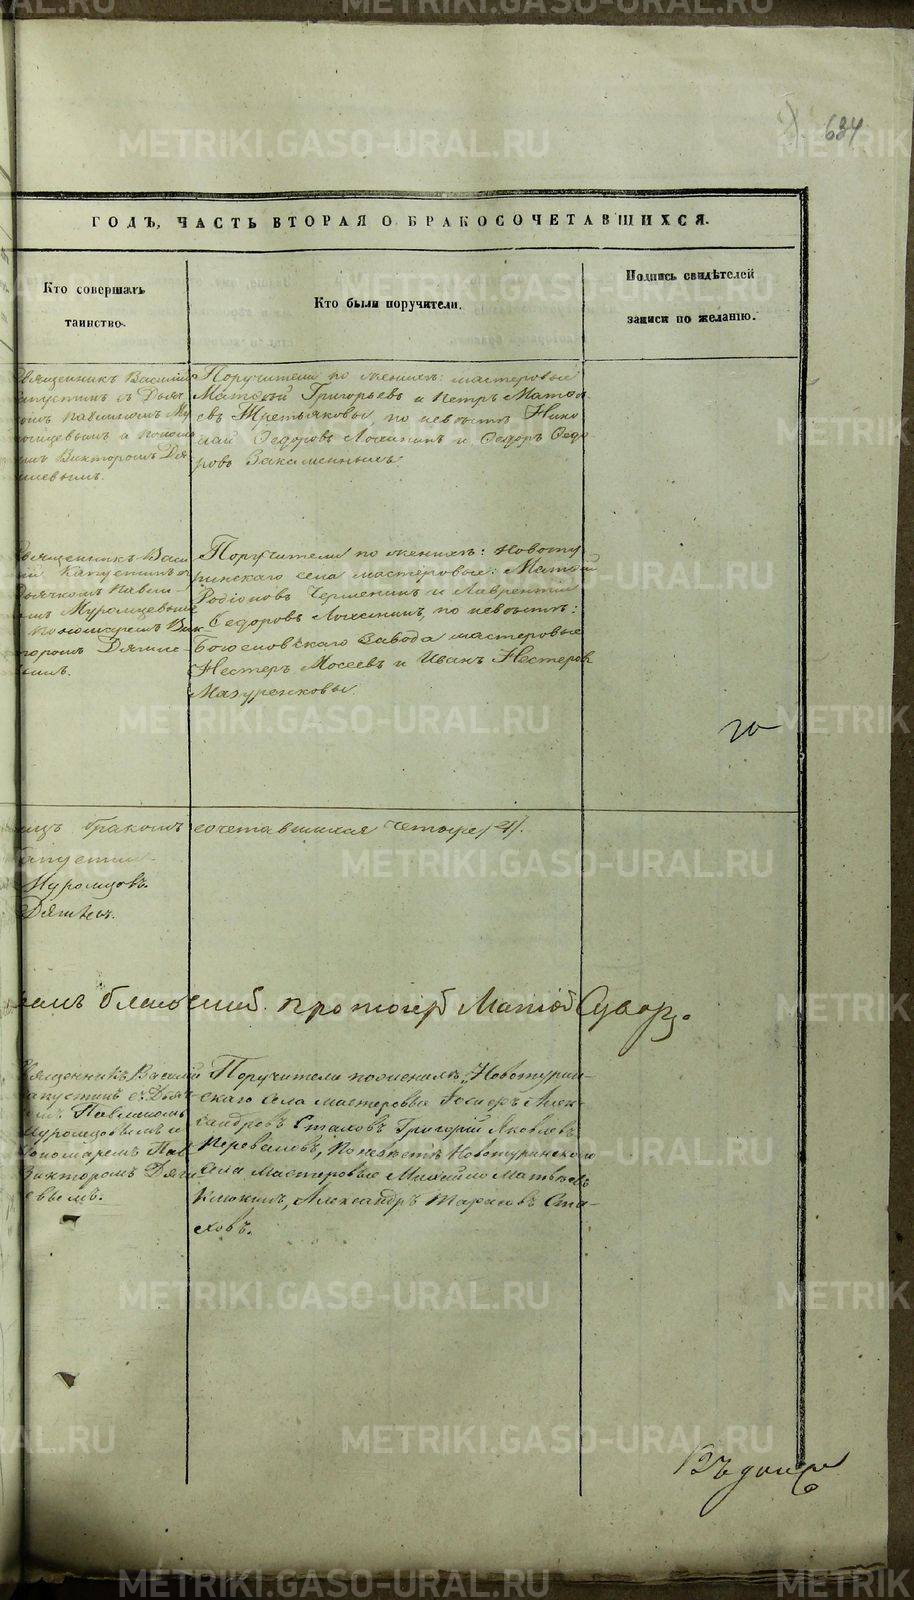 634
ГОДЪ, ЧАСТЬ ВТОРАЯ О БРАКОСОЧЕТАВШИХСЯ.
Кто совершалъ
таинство.
Кто были поручители.
Подпись свидѣтелей
записи по желанію.
Священникъ Василій
Капустинъ съ Дьяч
комъ Павлиномъ Му
ромцевымъ и Понома
ремъ Викторомъ Дя
гилевымъ.
Поручители по женихѣ: мастеровые
Матѳей Григорьевъ и Петръ Матѳѣ
евъ Третьяковы, по невѣстѣ Нико
лай Ѳедоровъ Лочкинъ и Ѳедоръ Ѳедо
ровъ Закаменныхъ
Священникъ Васи
лій Капустинъ съ
Дьячкомъ Павли-
номъ Муромцевымъ
и Пономаремъ Вик
торомъ Дягиле-
вымъ.
Поручители по женихѣ: Новоту
ринскаго села мастеровые: Матѳей
Родіоновъ и Лаврентій
Ѳедоровъ по невѣстѣ:
Богословскаго Завода мастеровые
Нестеръ Мосеевъ и Иванъ Нестеровъ
Мазуренковы.
бракомъ сочетавшихся четыре /4/.
Капустинъ
Муромцовъ.
Дягилевъ.
протоіерей Матѳей
Священникъ Василій
Капустинъ съ Дьяч
комъ Павлиномъ
Муромцовымъ и
Пономаремъ
Викторомъ Дяги
левымъ.
Поручители по женихѣ: Новотурин-
скаго села мастеровые Іосифъ Алек-
сандровъ Стаховъ Григорій Яковлевъ
Переваловъ, По невѣстѣ Новотуринскаго
села Мастеровые Михайло Матвѣевъ
Клюкинъ, Александръ Тарасовъ Ста-
ховъ.
METRIKI.GASO-URAL.RU